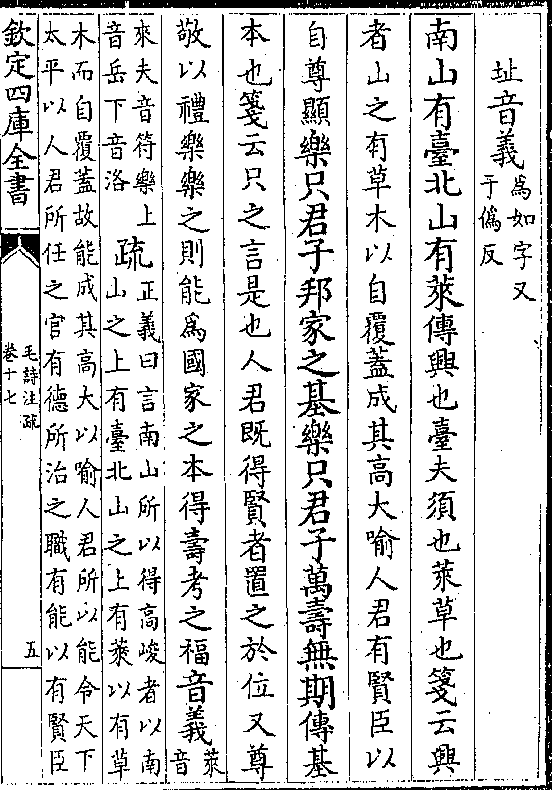 址音義爲如字又
于僞反
南山有臺北山有萊傳興也臺夫須也萊草也箋云興
者山之有草木以自覆蓋成其高大喻人君有賢臣以
自尊顯樂只君子邦家之基樂只君子萬壽無期傳基
本也箋云只之言是也人君既得賢者置之於位又尊
敬以禮樂樂之則能爲國家之本得壽考之福音義萊
音
來夫音符樂上
音岳下音洛
疏正義曰言南山所以得高峻者以南
山之上有臺北山之上有萊以有草
木而自覆蓋故能成其高大以喻人君所以能令天下
太平以人君所任之官有德所治之職有能以有賢臣
欽定四庫全書
毛詩注疏
卷十七
五